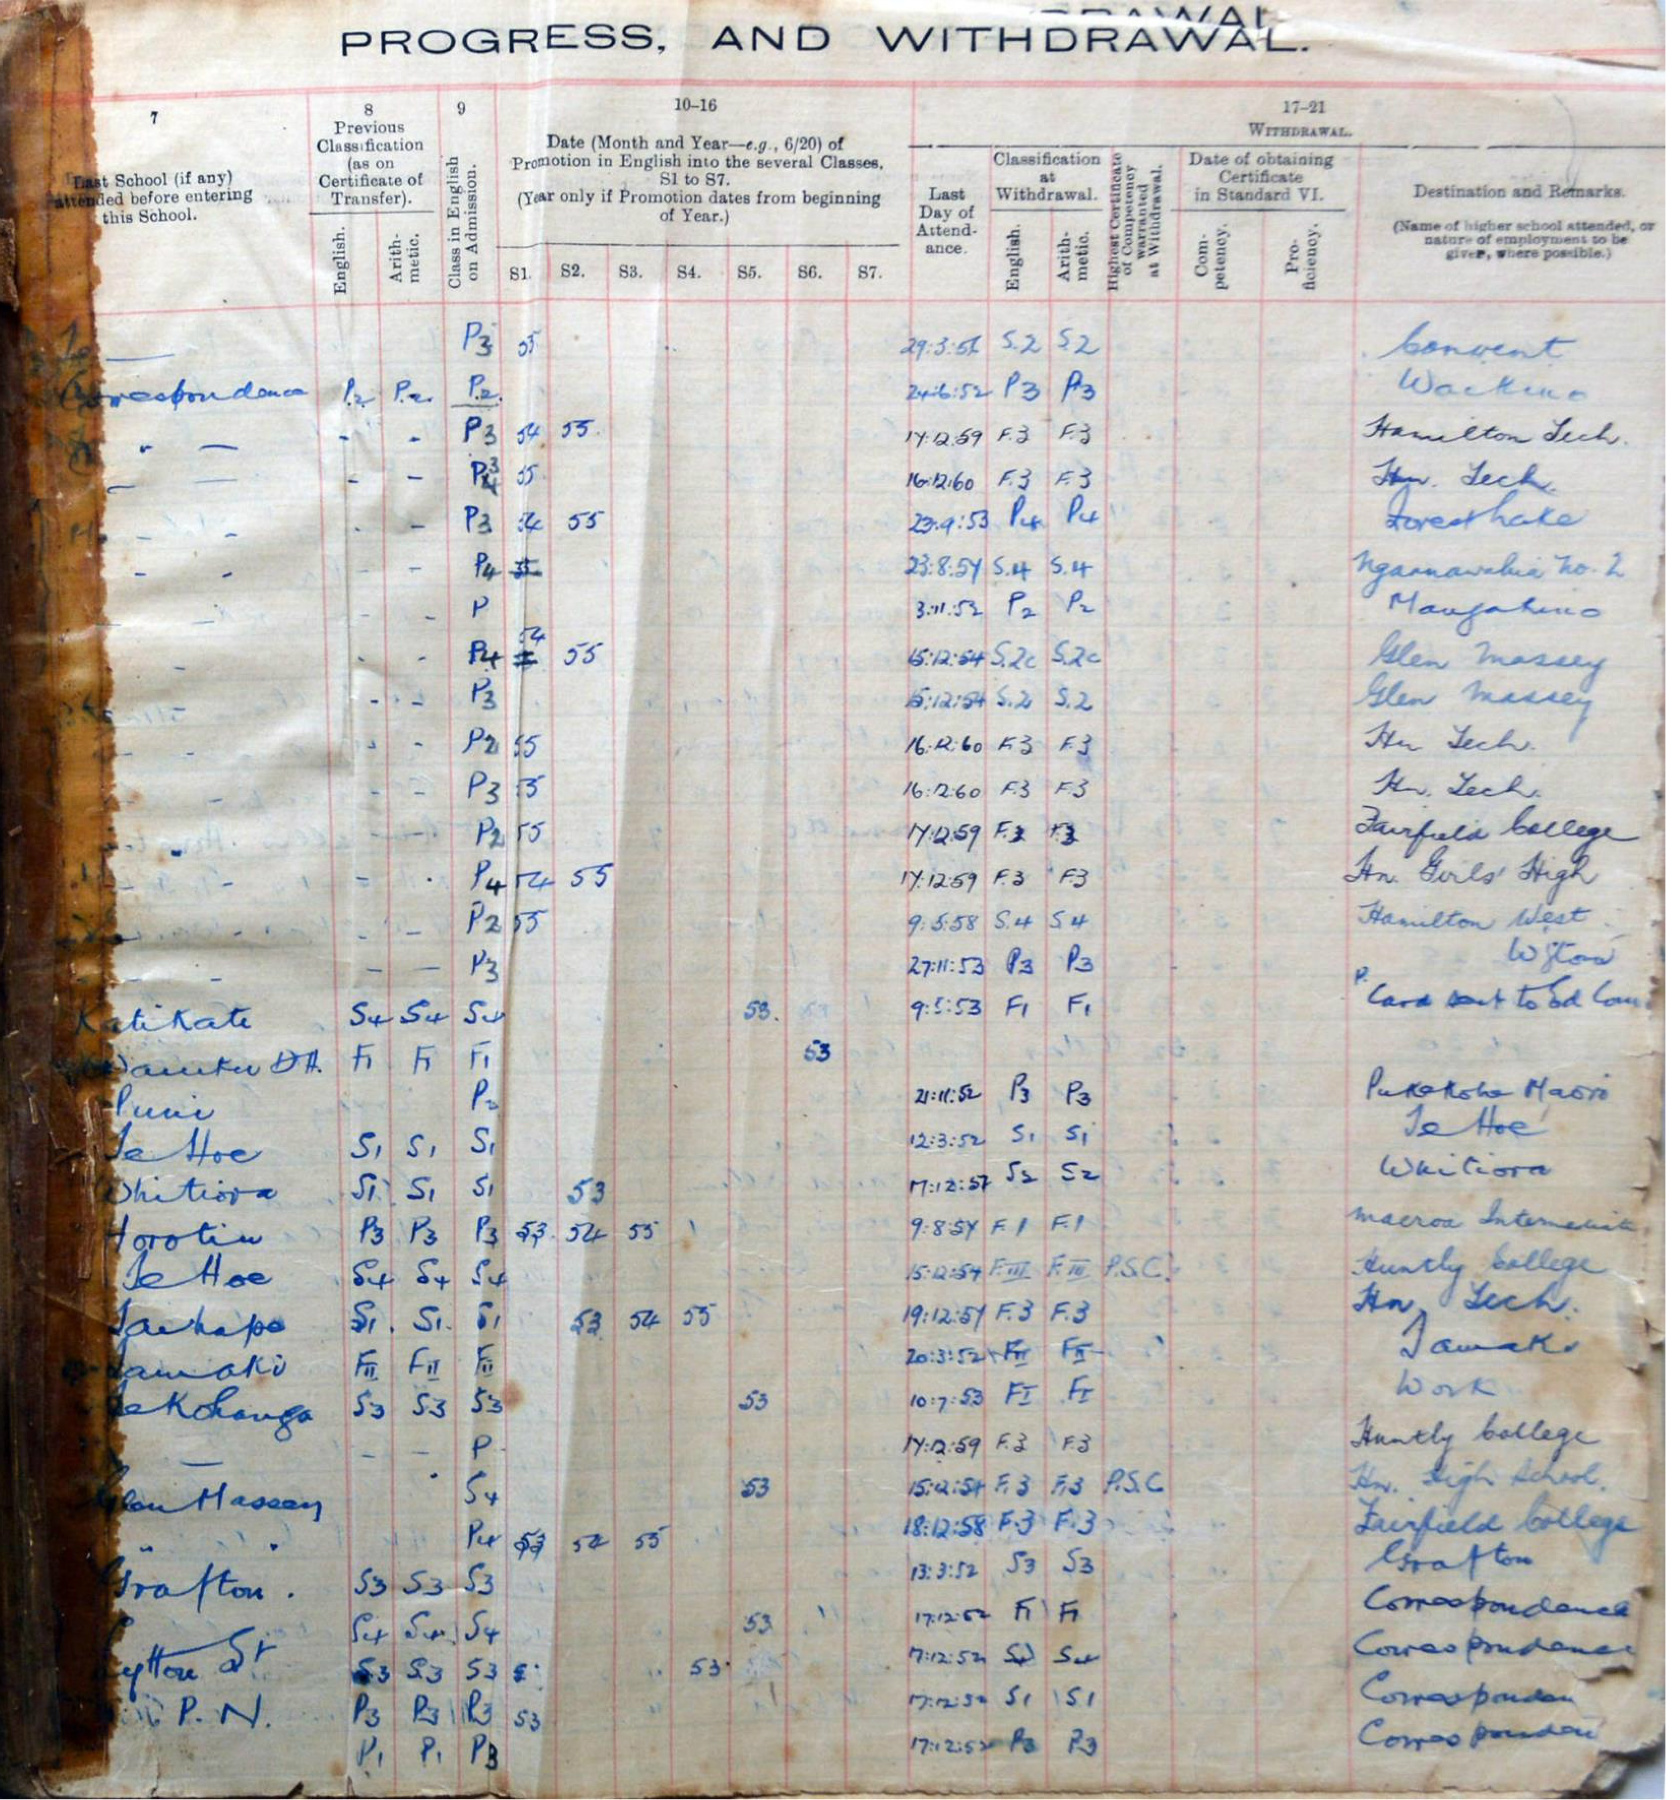 PROGRESS, AND WITHDRAWAL.
7
8
9
10–16
17–21
Last School (if any) attended before entering this School.
Previous Classification (as on Certificate of Transfer).
English.
Arithmetic.
Class in English on Admission.
Date (Month and Year—e.g., 6/20) of Promotion in English into the several Classes, S1 to S7.
(Year only if Promotion dates from beginning of Year.)
S1. S2. S3. S4. S5. S6. S7.
WITHDRAWAL.
Last Day of Attendance.
Classification at Withdrawal.
English.
Arithmetic.
Highest Certificate of Competency warranted at Withdrawal.
Date of obtaining Certificate in Standard VI.
Competency.
Proficiency.
Destination and Remarks.
(Name of higher school attended, or nature of employment to be given, where possible.)
— P3 55 29:3:56 S.2 S.2 Convent
Correspondence P.2 P.2 P.2 24:6:52 P3 P3
" — - - P3 54 55 17:12:59 F.3 F.3 Hamilton Tech.
— - - P3 55 16:12:60 F.3 F.3 Hn. Tech.
- - - - P3 54 55 23:9:53 P4 P4
- - - - P4 55 23:8:57 S.4 S.4 Ngaruawahia No. 2
- - - - P 3:11:52 P2 P2 Mangakino
- - - P4 54 55 15:12:54 S.2c S.2c Glen Massey
- - - P3 15:12:54 S.2 S.2 Glen Massey
- - P2 55 16:12:60 F.3 F.3 Hn Tech.
- - - P3 55 16:12:60 F.3 F.3 Hn. Tech.
- - P2 55 17:12:59 F.3 F.3 Fairfield College
- - - P4 54 55 17:12:59 F.3 F.3 Hn. Girls' High
- - - - P2 55 9:5:58 S.4 S4 Hamilton West
- - - - P3 27:11:53 P3 P3
Katikati S4 S4 S4 53. 9:5:53 F1 F1 Card sent to Ed
D.H. F1 F1 F1 53
Puni P2 21:11:52 P3 P3 Pukekohe Maori
Te Hoe S1 S1 S1 12:3:52 S1 S1 Te Hoe
Whitiora S1 S1 S1 53 17:12:57 S2 S2 Whitiora
Horotiu P3 P3 P3 53 54 55 9:8:57 F.1 F.1 Maeroa Intermediate
Te Hoe S4 S4 S4 15:12:54 F.III F.III P.S.C. Huntly College
Taihape S1. S1. S1 53 54 55 19:12:57 F.3 F.3 Hn. Tech.
Tamaki FII FII FII 20:3:52 FII FII Tamaki
Te Kohanga S3 S3 S3 53 10:7:53 FI FI Work
— - - P 17:12:59 F.3 F.3 Huntly College
Glen Massey S4 53 15:12:54 F.3 F.3 P.S.C Hn. High School.
" " P4 53 54 55 18:12:58 F.3 F.3 Fairfield College
Grafton. S3 S3 S3 13:3:52 S3 S3 Grafton
S4 S4 S4 53 17:12:52 F1 F1 Correspondence
Lytton St S3 S3 S3 53 17:12:52 S4 S4 Correspondence
P.N. P3 P3 P3 53 17:12:52 S1 S1 Corresponden
P1 P1 P3 17:12:52 P3 P3 Corresponden